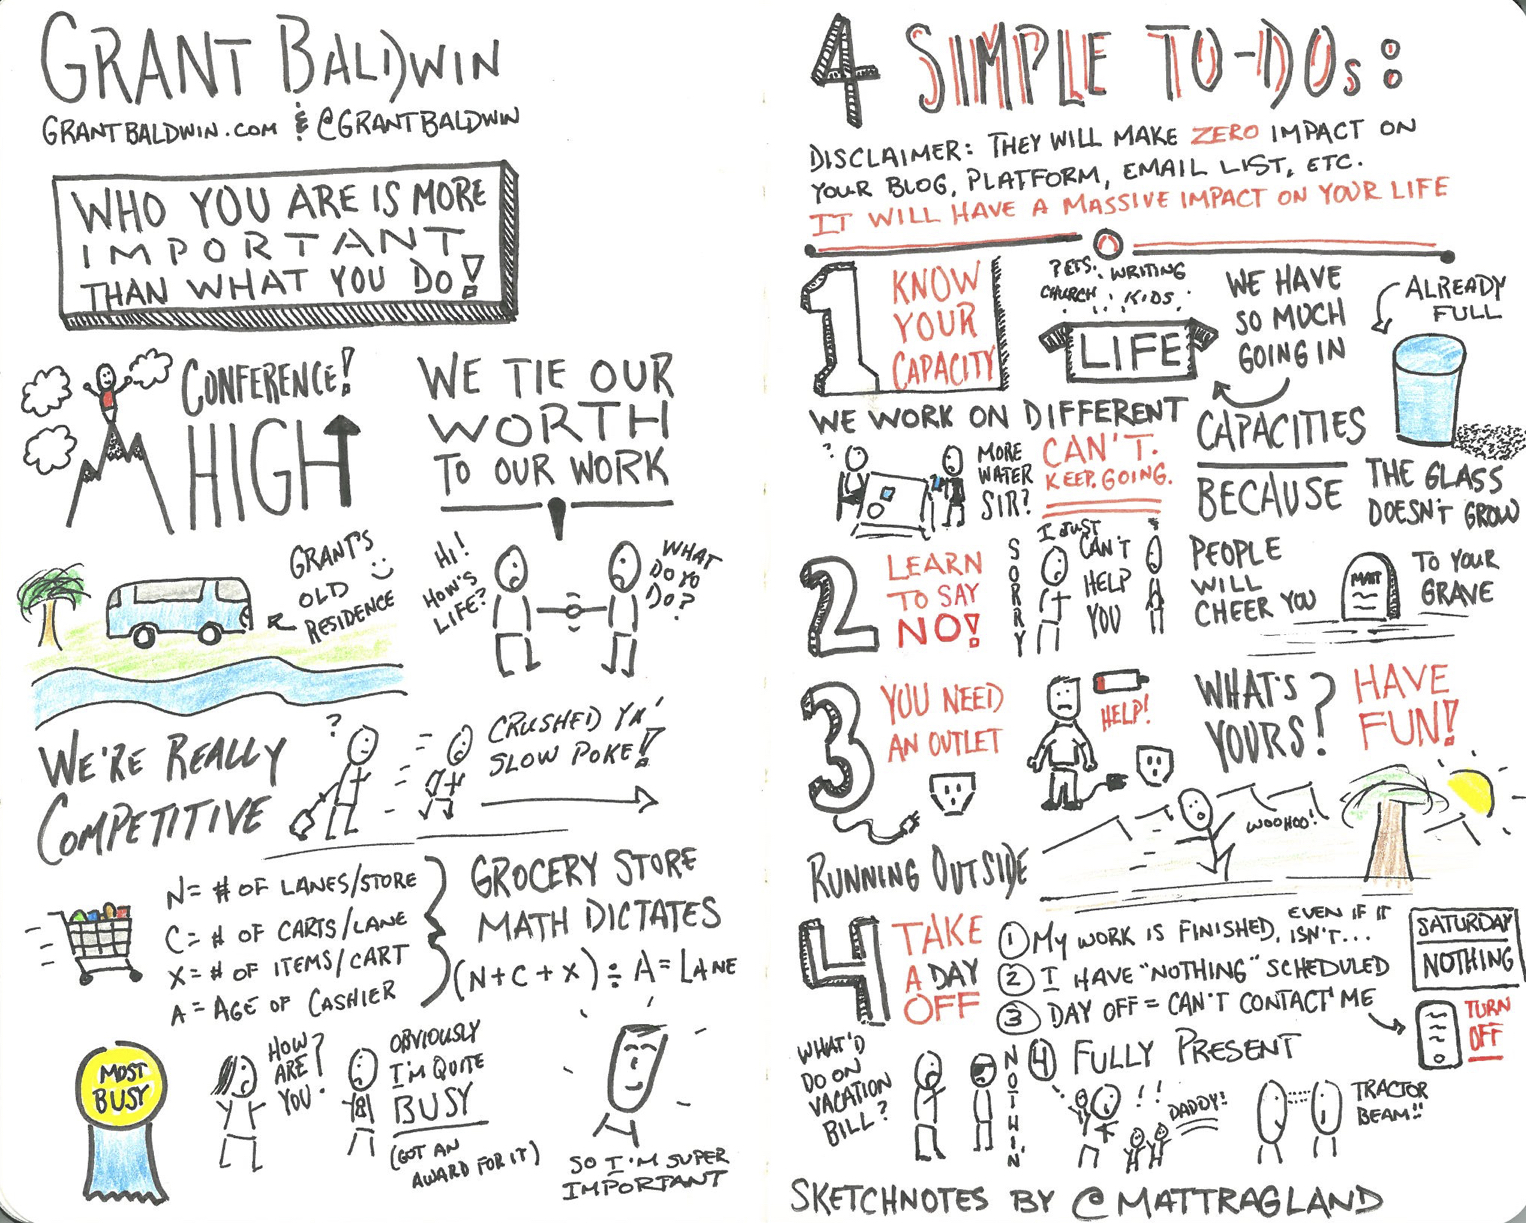 GRANT BALDWIN
GRANTBALDWIN.COM & @GRANTBALDWIN
WHO YOU ARE IS MORE
IMPORTANT
THAN WHAT YOU DO!
CONFERENCE!
HIGH
WE TIE OUR
WORTH
TO OUR WORK
GRANT'S
OLD
RESIDENCE
HI!
HOW'S
LIFE?
WHAT
DO YO
DO?
WE'RE REALLY
COMPETITIVE
?
CRUSHED YA'
SLOW POKE!
N= # OF LANES/STORE
C= # OF CARTS/LANE
X= # OF ITEMS/CART
A= AGE OF CASHIER
GROCERY STORE
MATH DICTATES
(N+C+X) ÷ A = LANE
MOST
BUSY
HOW
ARE
YOU?
OBVIOUSLY
I'M QUITE
BUSY
(GOT AN
AWARD FOR IT)
SO I'M SUPER
IMPORTANT
4 SIMPLE TO-DOs:
DISCLAIMER: THEY WILL MAKE ZERO IMPACT ON
YOUR BLOG, PLATFORM, EMAIL LIST, ETC.
IT WILL HAVE A MASSIVE IMPACT ON YOUR LIFE
1
KNOW
YOUR
CAPACITY
PETS. WRITING
CHURCH KIDS
LIFE
WE HAVE
SO MUCH
GOING IN
ALREADY
FULL
WE WORK ON DIFFERENT
CAPACITIES
BECAUSE
THE GLASS
DOESN'T GROW
?
MORE
WATER
SIR?
CAN'T.
KEEP. GOING.
2
LEARN
TO SAY
NO!
SORRY
I JUST
CAN'T
HELP
YOU
PEOPLE
WILL
CHEER YOU
MATT
TO YOUR
GRAVE
3
YOU NEED
AN OUTLET
HELP!
WHAT'S
YOURS?
HAVE
FUN!
RUNNING OUTSIDE
WOOHOO!
4
TAKE
A DAY
OFF
1 MY WORK IS FINISHED, EVEN IF IT
ISN'T...
2 I HAVE "NOTHING" SCHEDULED
3 DAY OFF = CAN'T CONTACT ME
SATURDAY
NOTHING
TURN
OFF
4 FULLY PRESENT
WHAT'D
DO ON
VACATION
BILL?
NOTHIN'
!!
DADDY!
TRACTOR
BEAM!!
SKETCHNOTES BY @MATTRAGLAND